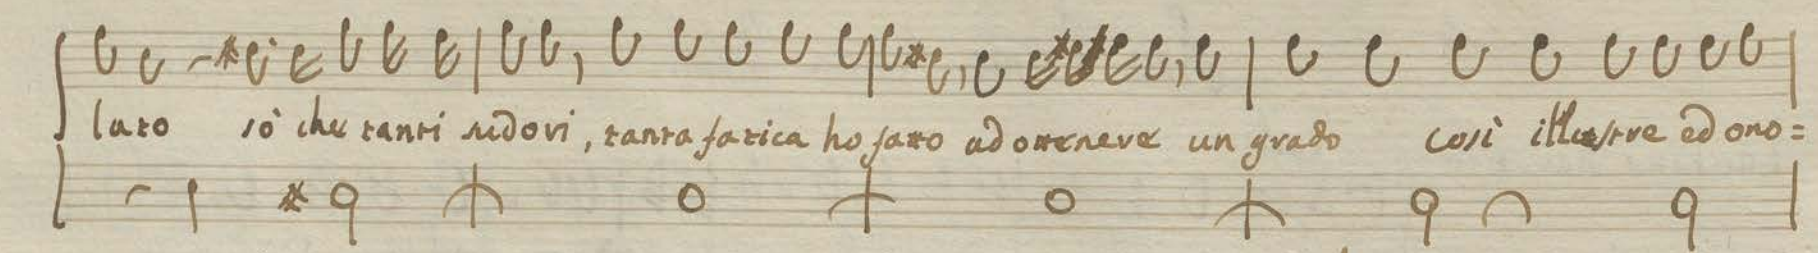 lato sò che tanti sudori, tanta fatica ho fatto ad ottenere un grado così illustre ed ono=